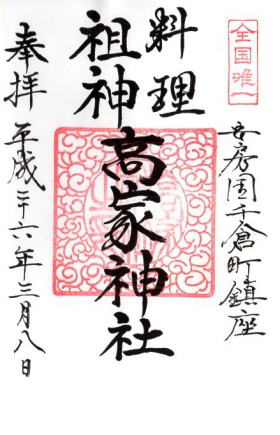 全国唯一
安房国千倉町鎮座
料理
祖神
高家神社
奉拝
平成二十六年三月八日